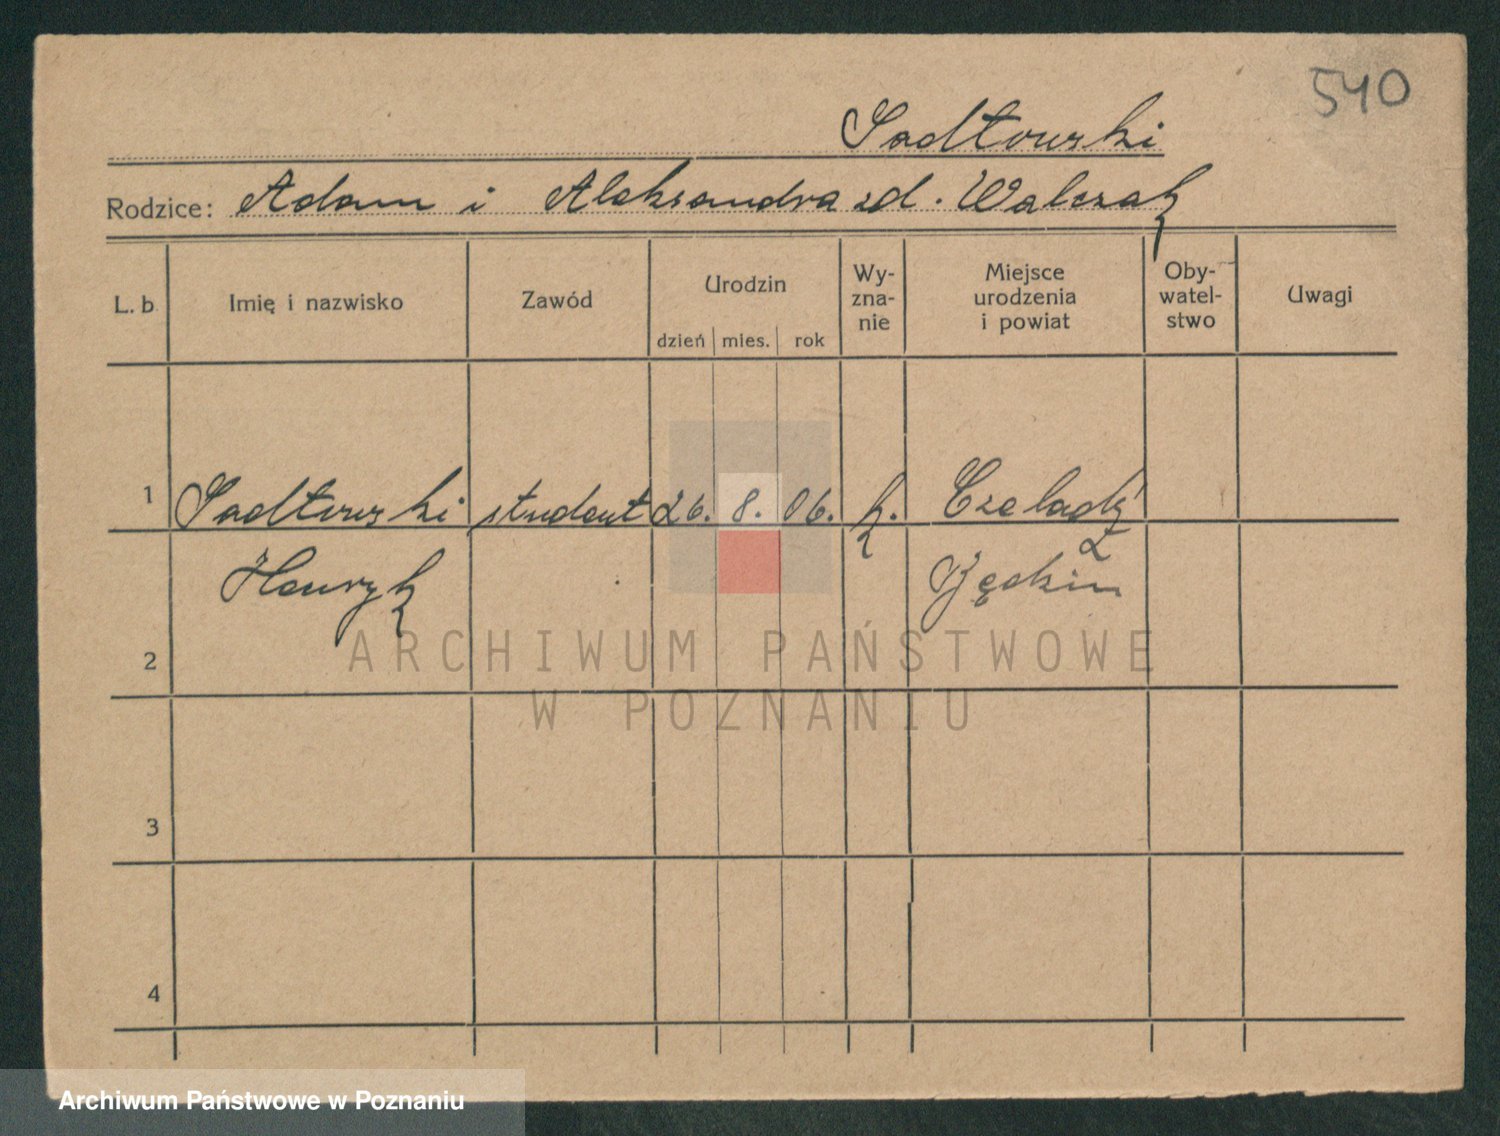 540
Sadłowski
Rodzice: Adam i Aleksandra zd. Walczak
L. b.
Imię i nazwisko
Zawód
Urodzin
dzień mies. rok
Wy-
zna-
nie
Miejsce
urodzenia
i powiat
Oby-
watel-
stwo
Uwagi
1 Sadłowski student 26. 8. 06. k. Czeladź
Henryk Będzin
2
3
4
ARCHIWUM PAŃSTWOWE
W POZNANIU
Archiwum Państwowe w Poznaniu